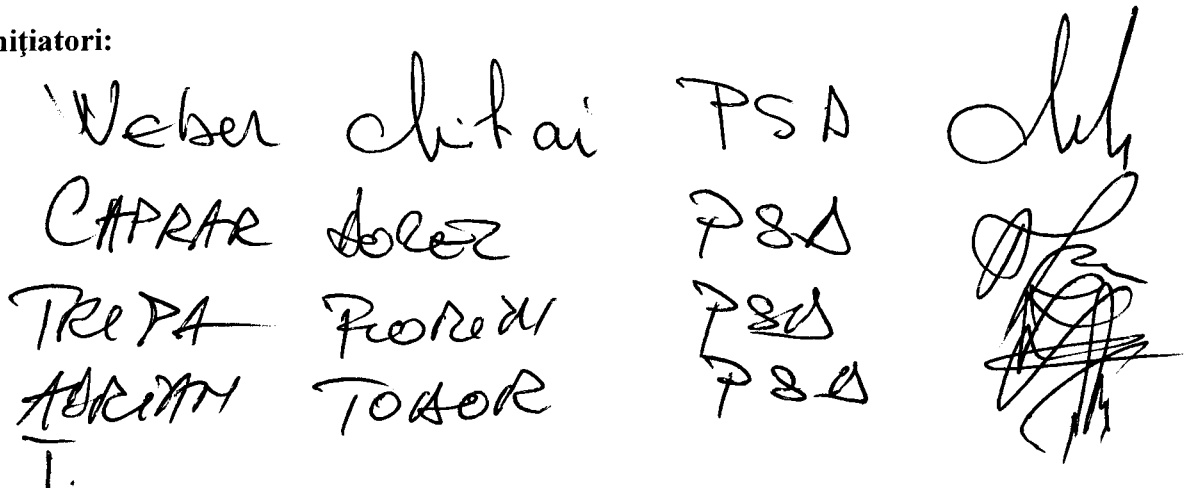 nițiatori:
Weber Mihai PSD
CAPRAR DOREL PSD
TRIPA FLORIN PSD
ADRIAN TODOR PSD